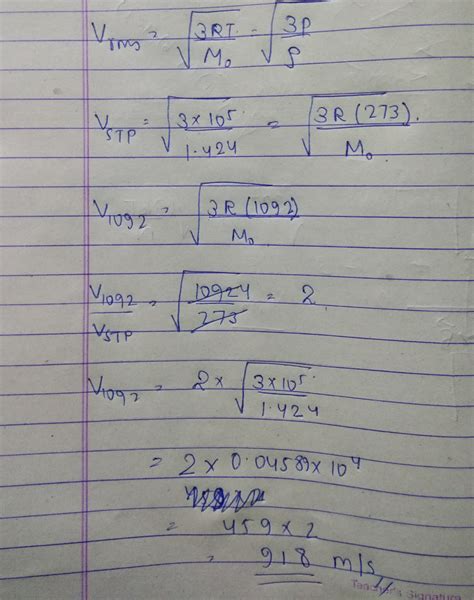 V_rms = √(3RT/M₀) = √(3P/ρ)
V_STP = √(3×10⁵/1.424) = √(3R(273)/M₀)
V₁₀₉₂ = √(3R(1092)/M₀)
V₁₀₉₂/V_STP = √(1092 4/273) = 2
V₁₀₉₂ = 2 × √(3×10⁵/1.424)
= 2 × 0.04589 × 10⁴
= 459 × 2
= 918 m/s
Teacher's Signature